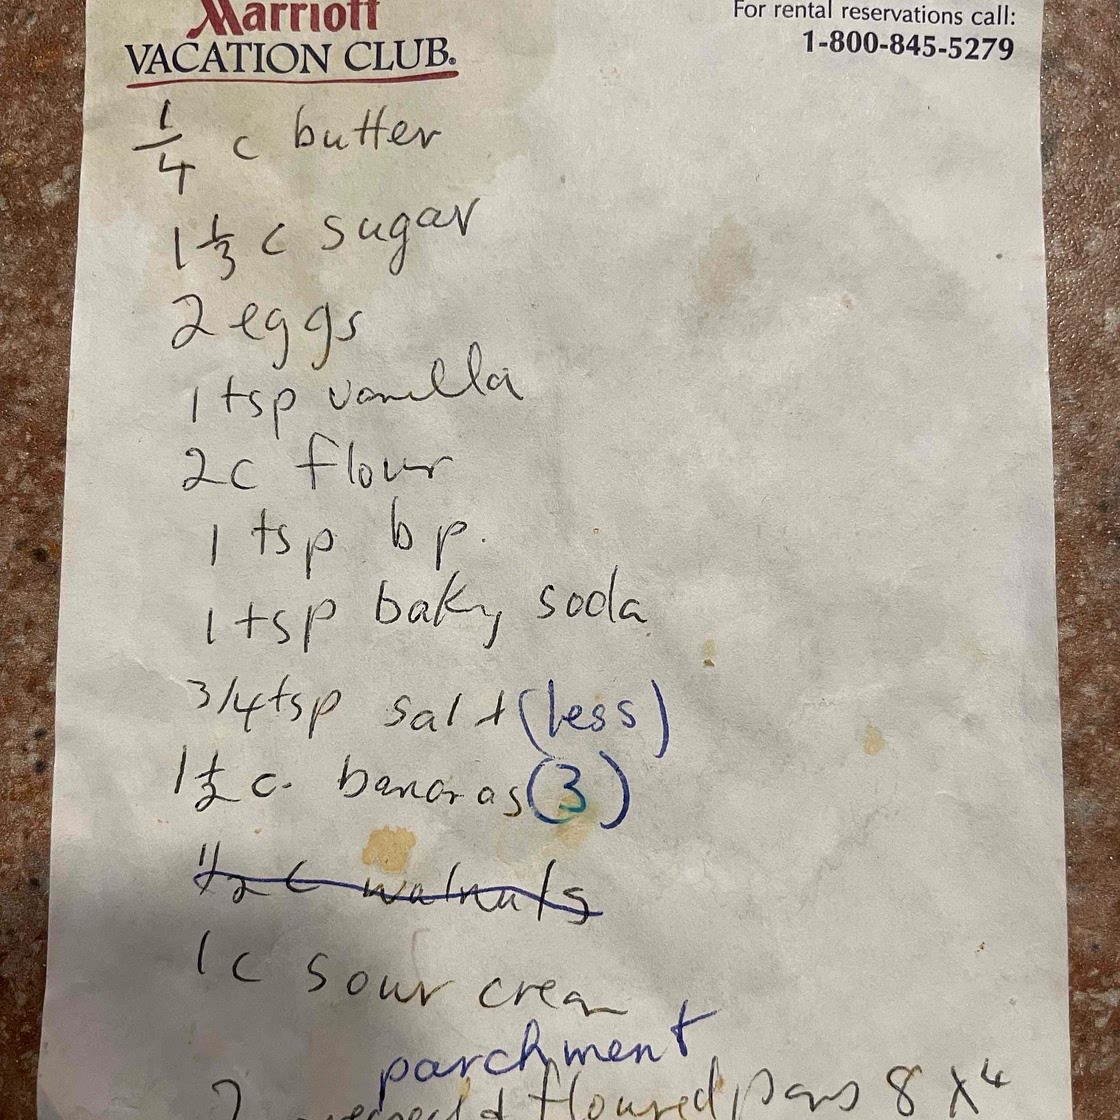 Marriott
VACATION CLUB®
For rental reservations call:
1-800-845-5279
1/4 c butter
1 1/3 c sugar
2 eggs
1 tsp vanilla
2c flour
1 tsp bp.
1 tsp baking soda
3/4 tsp salt (less)
1 1/2 c. bananas (3)
1/2 c walnuts
1c sour cream
parchment
2 greased & floured pans 8 x 4